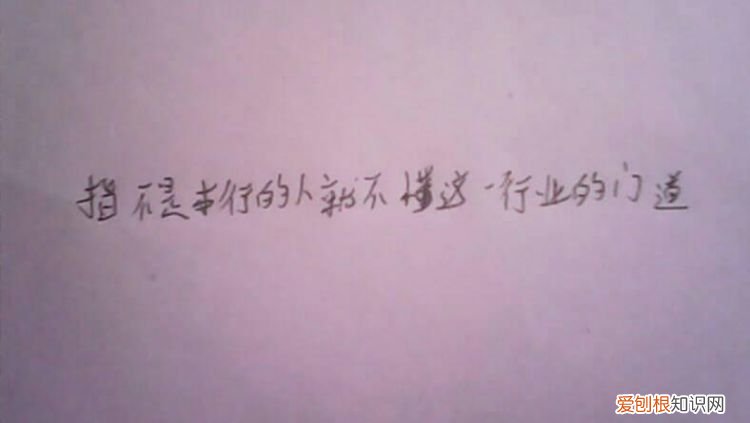 指不是本行的人就不懂这一行业的门道
爱刨根知识网